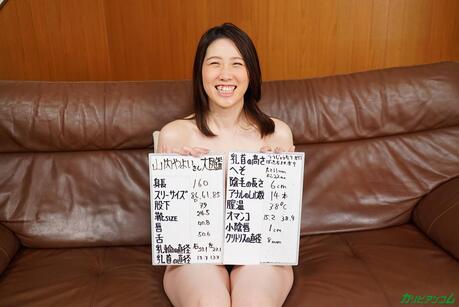 山本やよいさん大図鑑
身長 160
スリーサイズ 86,61,85
股下 79
靴size 24.5
唇
舌 50.6
乳輪の直径
乳首の直径
乳首の高さ
へそ
陰毛の長さ 6cm
アナルのしわの数 14本
膣温 38℃
オマンコ 15.2 38.9
小陰唇 1cm
クリトリスの直径 8mm
カリビアンコム